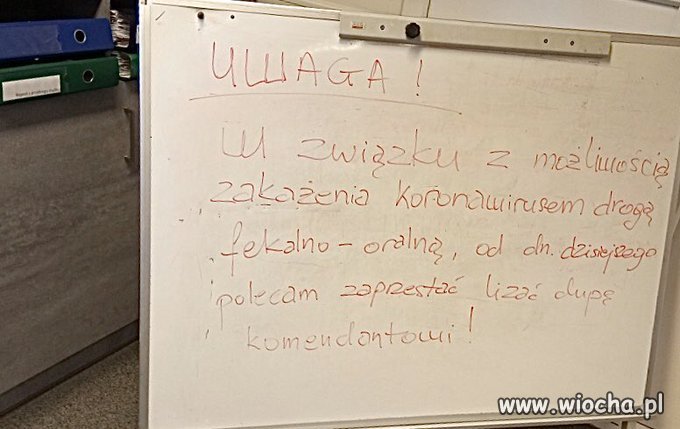 UWAGA!
W związku z możliwością
zakażenia koronawirusem drogą
fekalno-oralną, od dn. dzisiejszego
polecam zaprzestać lizać dupę
komendantowi!
www.wiocha.pl